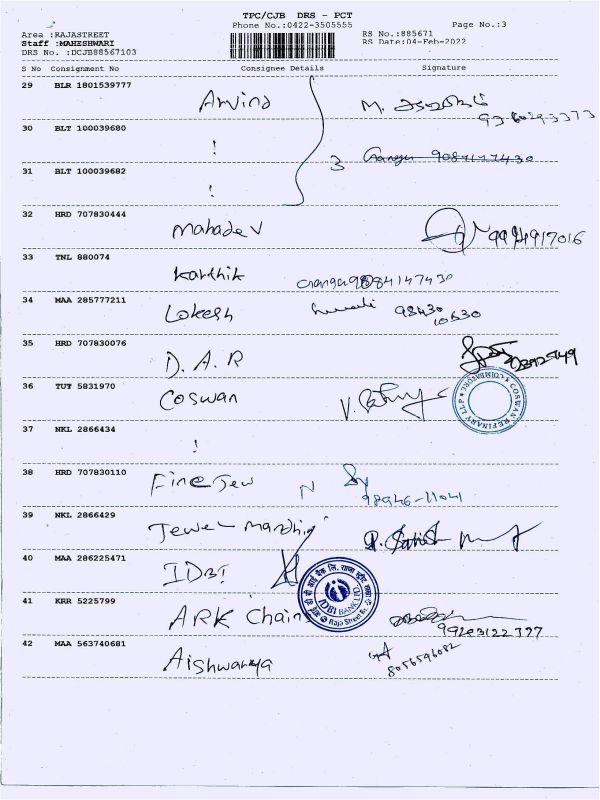 TPC/CJB DRS - PCT
Phone No.:0422-3505555
Page No.:3
Area :RAJASTREET
RS No.:885671
Staff :MAHESHWARI
RS Date:04-Feb-2022
DRS No. :DCJB88567103
S No Consignment No Consignee Details Signature
29 BLR 1801539777 Arvind M.
30 BLT 100039680 !
3 Ganga 9084147430
31 BLT 100039682 !
32 HRD 707830444 Mahadev 9994917016
33 TNL 880074 Karthik Ganga 9084147430
34 MAA 285777211 Lokesh 98430
10630
35 HRD 707830076 D.A.R
36 TUT 5831970 Coswan V.
COSWAN REFINARY LLP
COIMBATORE
37 NKL 2866434 !
38 HRD 707830110 Fine Jew N
98946-11041
39 NKL 2866429 Jewel
40 MAA 286225471 IDBI
IDBI BANK LTD.
Raja Street Br.
41 KRR 5225799 ARK Chains
42 MAA 563740681 Aishwarya
8056596082